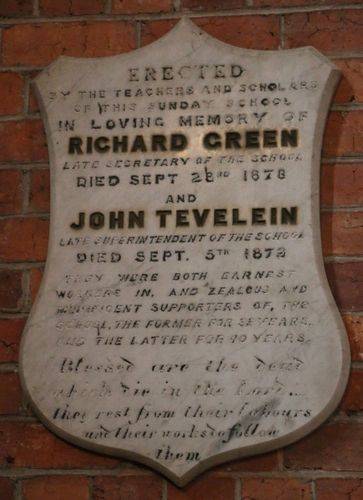 ERECTED
BY THE TEACHERS AND SCHOLARS
OF THIS SUNDAY SCHOOL
IN LOVING MEMORY OF
RICHARD GREEN
LATE SECRETARY OF THE SCHOOL
DIED SEPT 23RD 1878
AND
JOHN TEVELEIN
LATE SUPERINTENDENT OF THE SCHOOL
DIED SEPT. 5TH 1872
THEY WERE BOTH EARNEST
WORKERS IN, AND ZEALOUS AND
MUNIFICENT SUPPORTERS OF, THE
SCHOOL, THE FORMER FOR YEARS,
AND THE LATTER FOR 40 YEARS.
Blessed are the dead
which die in the Lord...
they rest from their labours
and their works do follow
them